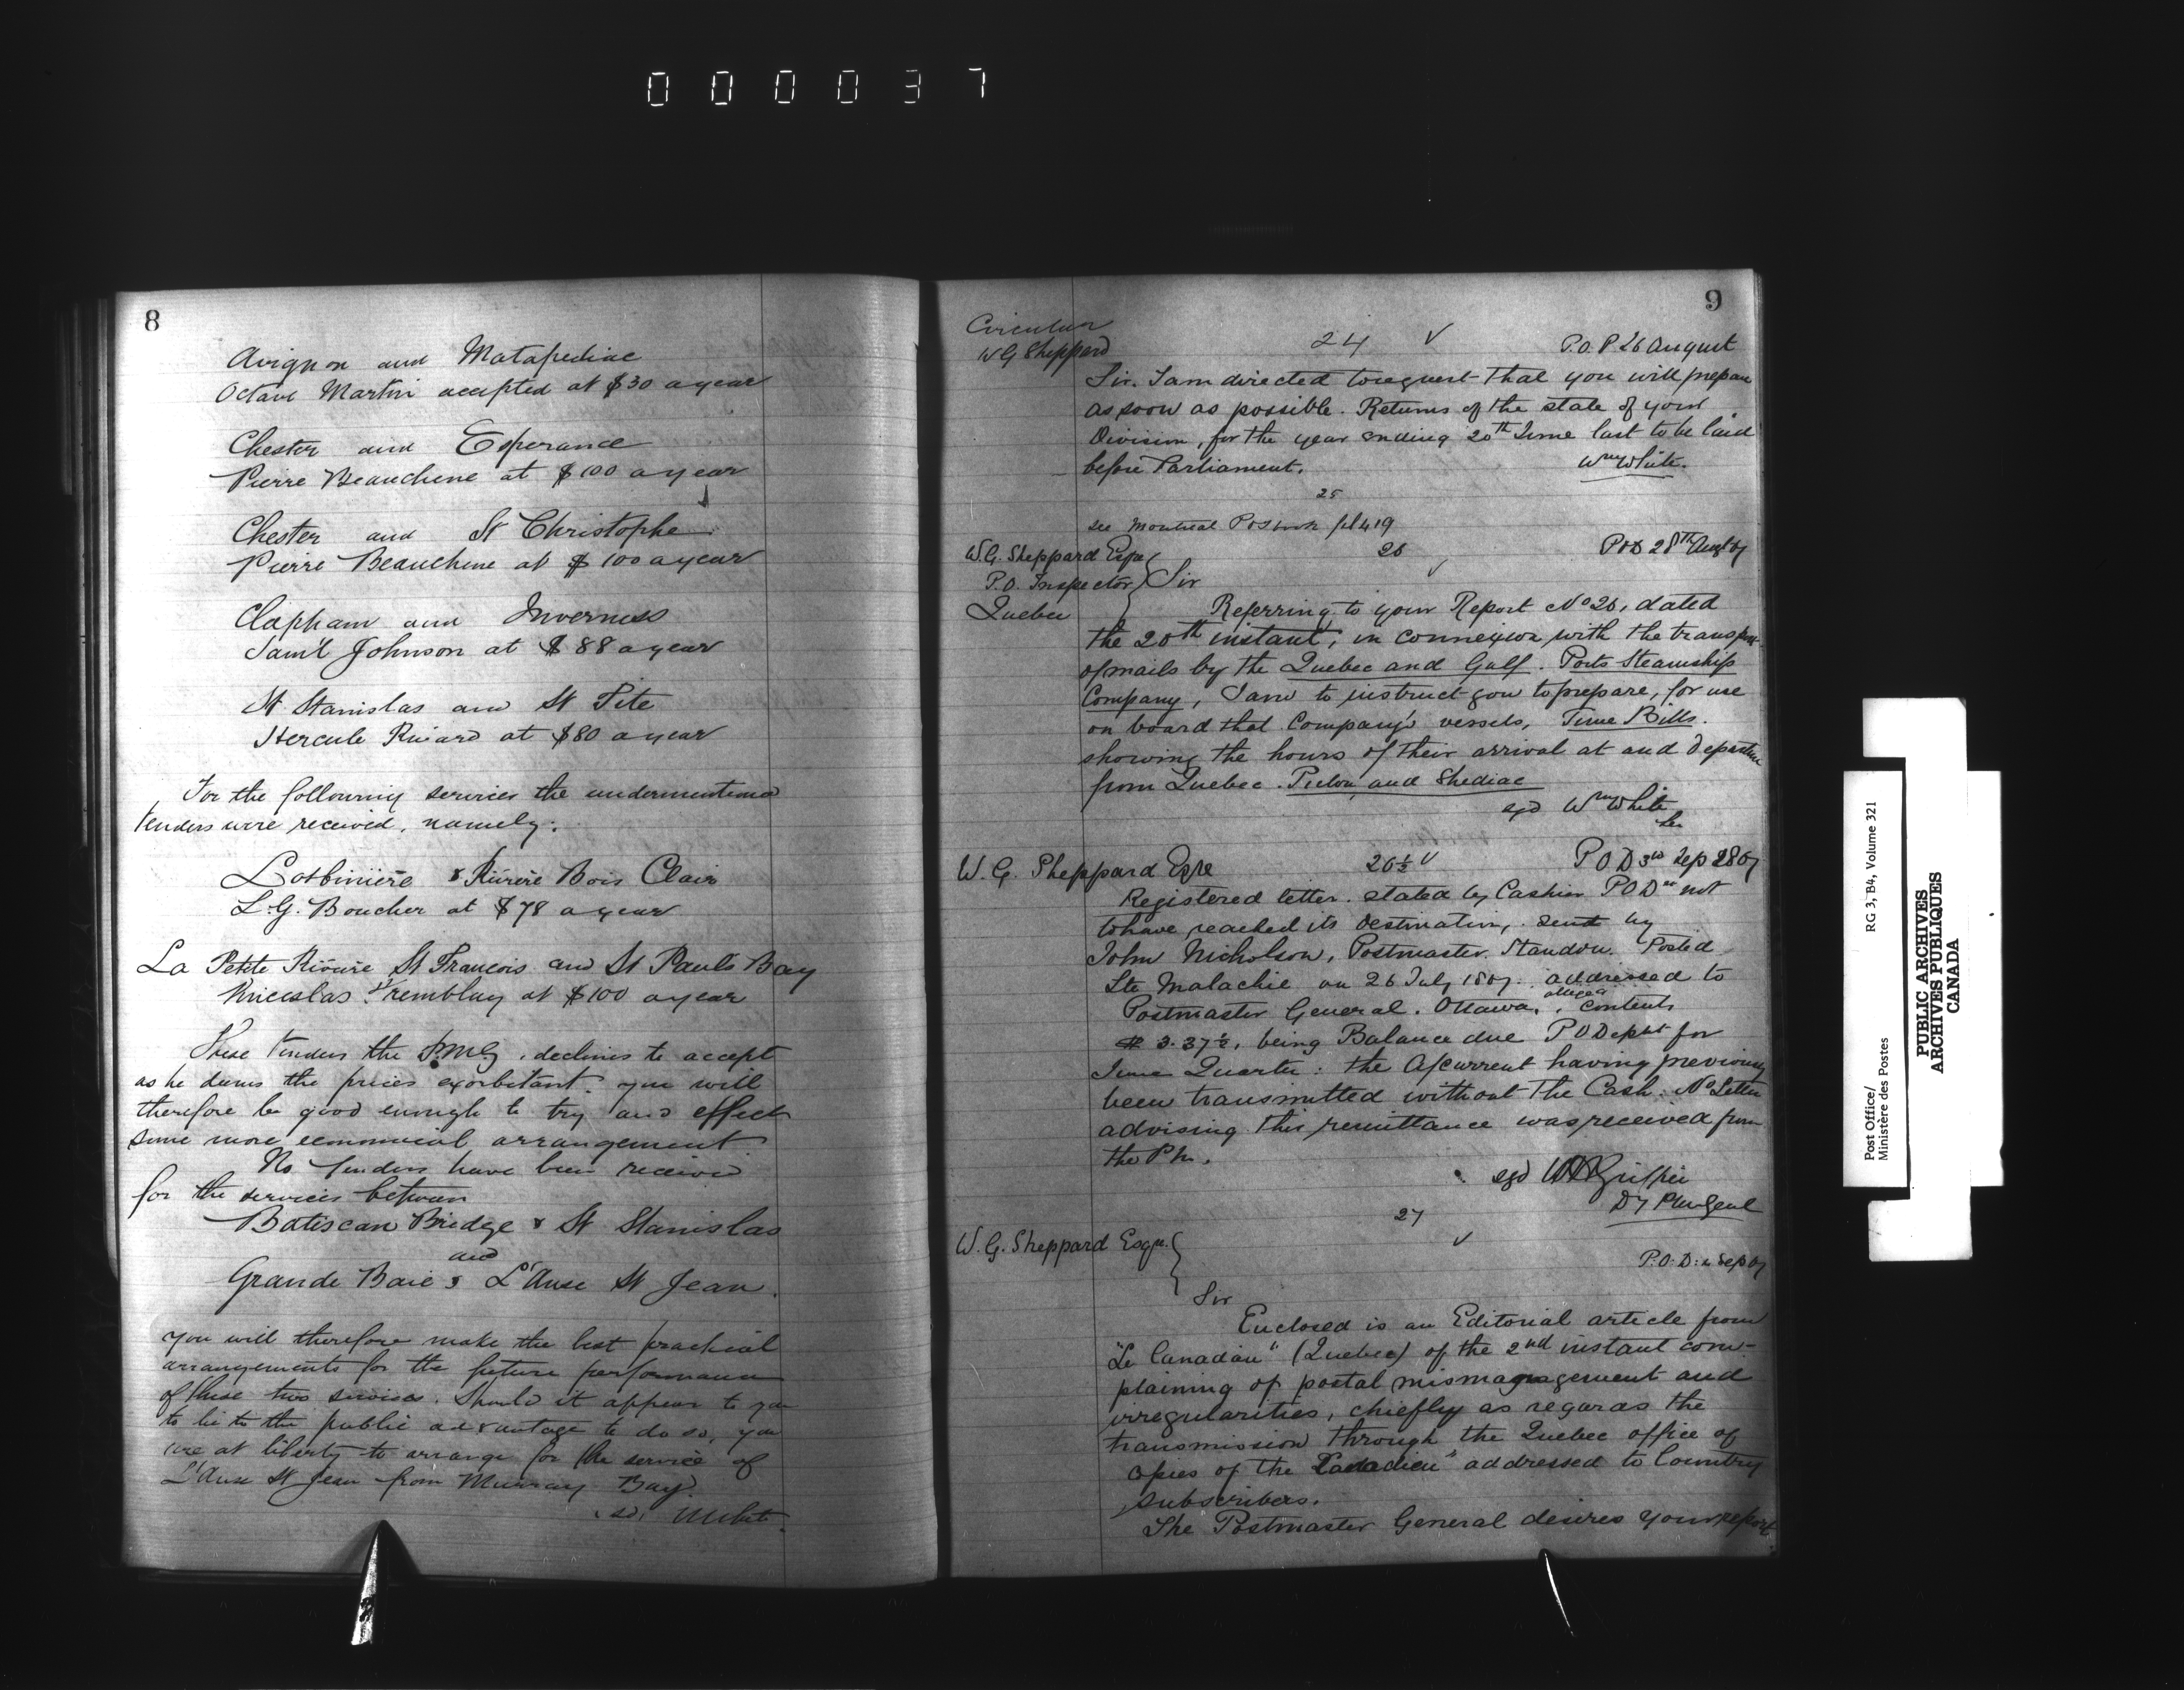 000037
8
Avignon and Matapediac
Octave Martin accepted at $30 a year
Chester and Esperance
Pierre Beauchene at $100 a year
Chester and St Christophe
Pierre Beauchene at $100 a year
Clapham and Inverness
Saml Johnson at $88 a year
St Stanislas and St Tite
Hercule Rivard at $80 a year
For the following services the undermentioned
tenders were received, namely:
Lotbinière & Rivière Bois Clair
L.G. Boucher at $78 a year
La Petite Rivière St Francois and St Pauls Bay
Tremblay at $100 a year
These tenders the P.M.G. declines to accept
as he deems the prices exorbitant. you will
therefore be good enough to try and effect
some more economical arrangement
No tenders have been received
for the services between
Batiscan Bridge & St Stanislas
and
Grande Baie & L'Anse St Jean.
you will therefore make the best practical
arrangements for the future performance
of these two services. Should it appear to you
to be to the public advantage to do so, you
are at liberty to arrange for the service of
L'Anse St Jean from Murray Bay.
sd, White
9
Circular
W G Sheppard
24 V P.O.D. 26 August
Sir. I am directed to request that you will prepare
as soon as possible. Returns of the state of your
Division, for the year ending 30th June last to be laid
before Parliament.
Wm White.
25
see Montreal POS book fol 419
W.G. Sheppard Esqre
P.O. Inspector
Quebec
26 V
POD 28th Aug 67
Sir
Referring to your Report No 26, dated
the 20th instant, in connexion with the transport
of mails by the Quebec and Gulf. Ports Steamship
Company, I am to instruct you to prepare, for use
on board that Company's vessels, Time Bills.
showing the hours of their arrival at and departure
from Quebec. Pictou and Shediac
sgd Wm White
Sec
W. G. Sheppard Esqre
26½ V
P O D 3rd Sep 1867
Registered letter. stated by Cashier POD not
to have reached its destination, sent by
John Nicholson, Postmaster. Standon. Posted
Ste Malachie on 26 July 1867. addressed to
Postmaster General. Ottawa, alleged contents
$ 3.37½, being Balance due P O Dept for
June Quarter: the A/current having previously
been transmitted without the Cash. No Letter
advising this remittance was received from
the Pm.
sgd WH Griffin
Dy PmGenl
27 V
W. G. Sheppard Esqre.
P.O.D. Sep 67
Sir
Enclosed is an Editorial article from
"Le Canadien" (Quebec) of the 2nd instant com-
plaining of postal mismanagement and
irregularities, chiefly as regards the
transmission through the Quebec office of
copies of the Canadien" addressed to Country
subscribers.
The Postmaster General desires your report
Post Office/
Ministère des Postes
RG 3, B4, Volume 321
PUBLIC ARCHIVES
ARCHIVES PUBLIQUES
CANADA